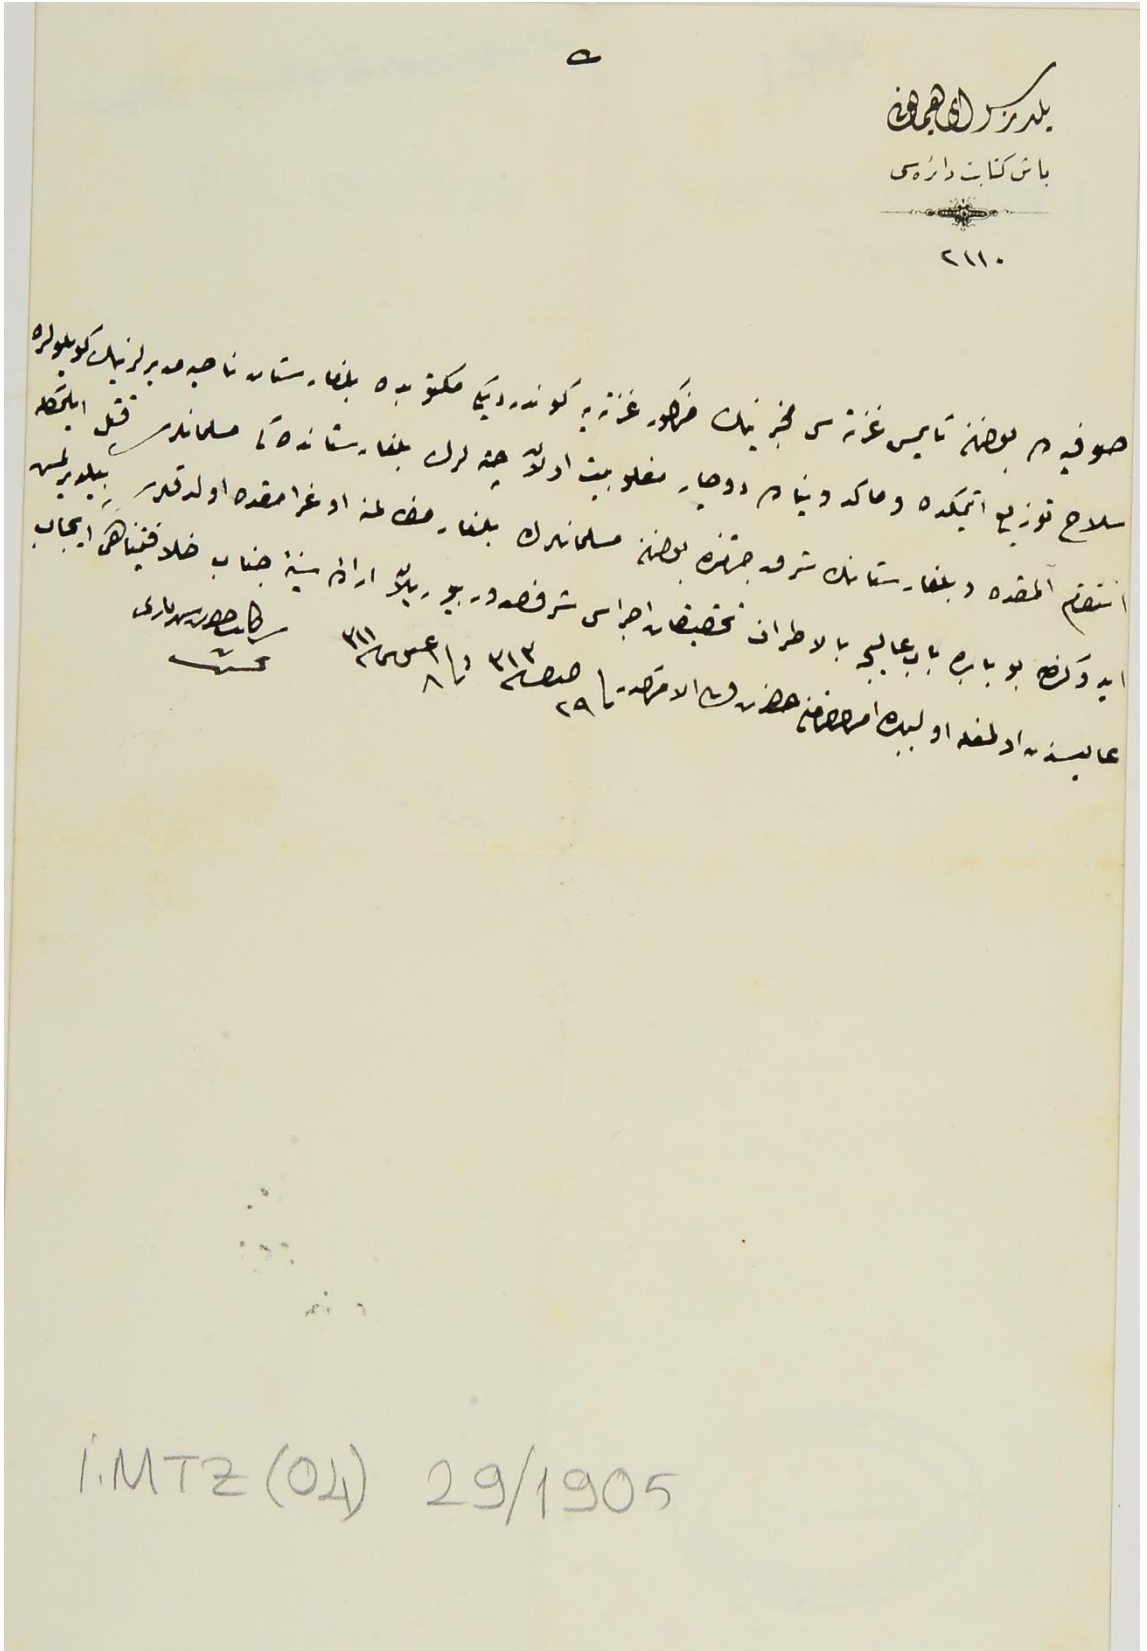 يلديز سراى همايونى
باش كتابت دائره سى
٢١١٠
صوفيه ده بولنان تايمس غزته سى مخبرينك مذكور غزته يه كوندرديكى مكتوبده بلغارستان ناحيه مديرلرينك كويلولره
سلاح توزيع ايتمكده وماكدونياده دوچار مغلوبيت اولان چته لرك بلغارستانده كى مسلمانلرى قتل ايتمكله
انتقام آلمقده وبلغارستانك شرق جهتنده بولنان مسلمانلرك بلغار مظالمنه اوغرامقده اولدقلرى بيلديرلمش
ايدوكندن بو بابده باب عاليجه بالاطراف تحقيقات اجراسى شرفصدور بيوريلان اراده سنيۀ جناب خلافتپناهى ايجاب
عاليسندن اولمغله اولبابده امر وفرمان حضرت ولى الامركدر فى ٢٩ صفر سنه ٣١٣ وفى ٨ اغستوس سنه ٣١١
سركاتب حضرت شهريارى
تحسين
İ.MTZ (04) 29/1905